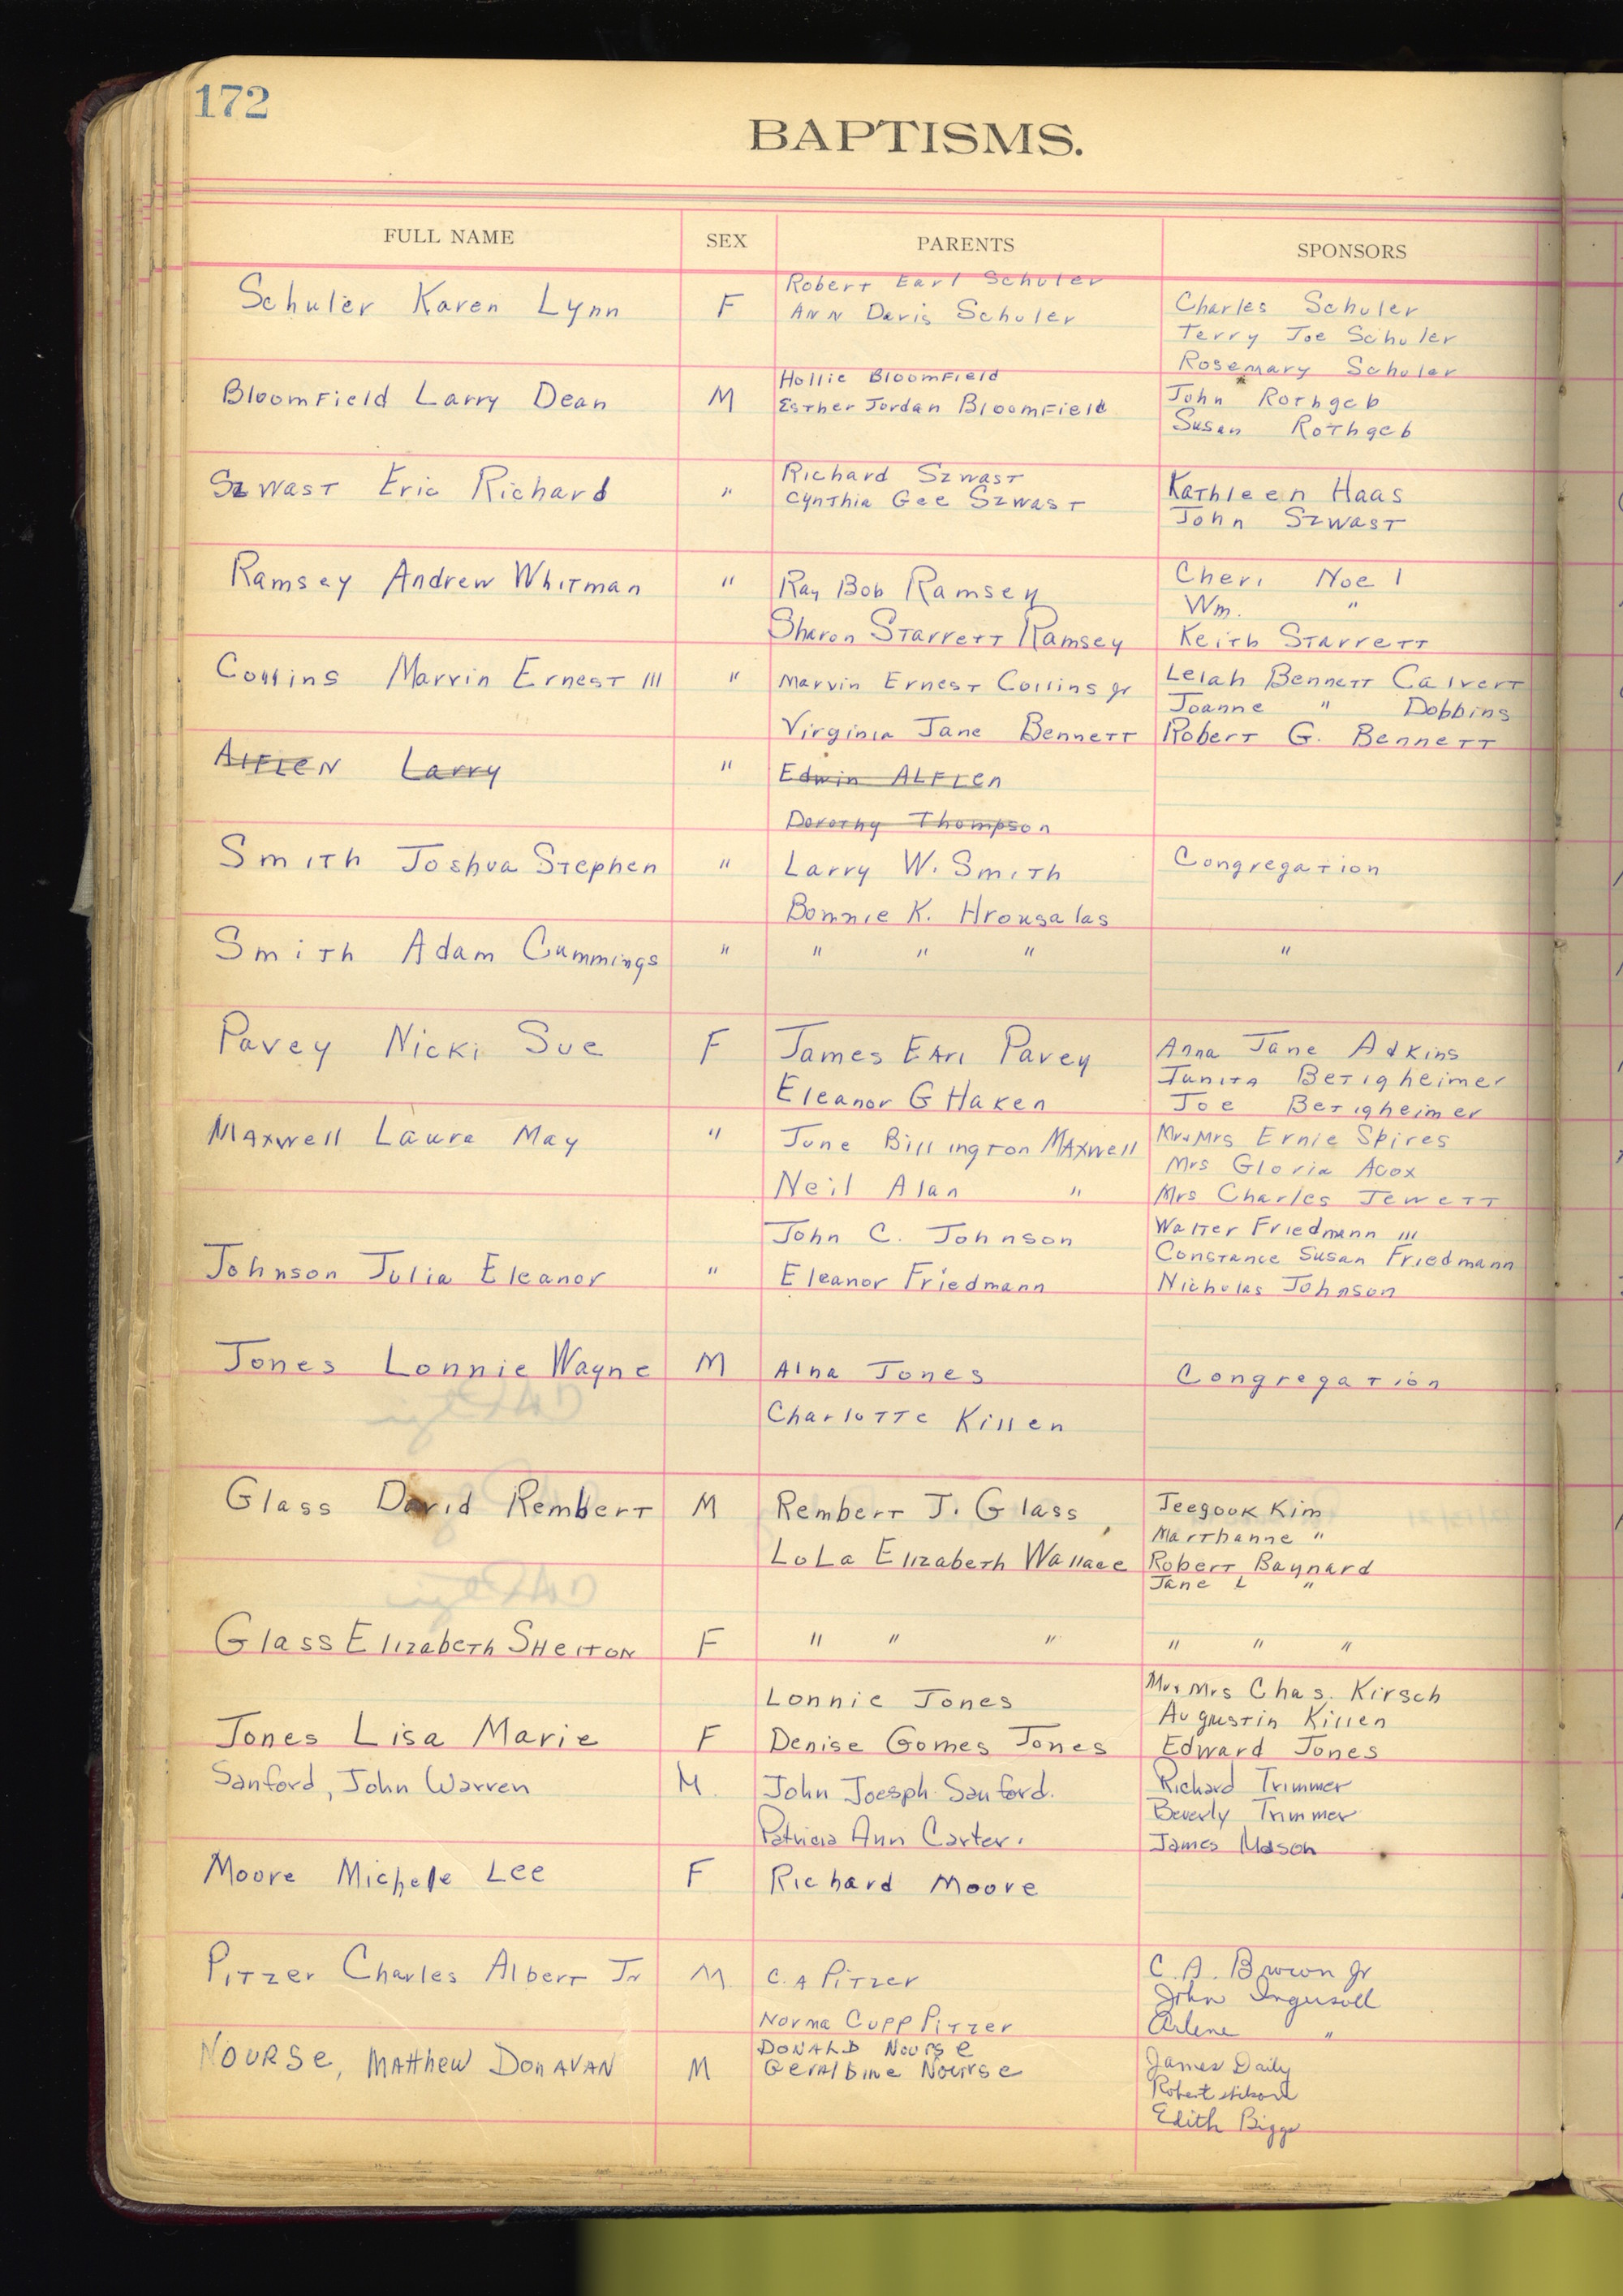 172
BAPTISMS.
FULL NAME SEX PARENTS SPONSORS
Robert Earl Schuler
Schuler Karen Lynn F Ann Davis Schuler Charles Schuler
Terry Joe Schuler
Rosemary Schuler
Hollie Bloomfield
Bloomfield Larry Dean M Esther Jordan Bloomfield John Rothgeb
Susan Rothgeb
Richard Szwast
Szwast Eric Richard " Cynthia Gee Szwast Kathleen Haas
John Szwast
Ramsey Andrew Whitman " Ray Bob Ramsey Cheri Noel
Wm. "
Sharon Starrett Ramsey Keith Starrett
Collins Marvin Ernest III " Marvin Ernest Collins Jr Lelah Bennett Calvert
Joanne " Dobbins
Virginia Jane Bennett Robert G. Bennett
Alflen Larry " Edwin Alflen
Dorothy Thompson
Smith Joshua Stephen " Larry W. Smith Congregation
Bonnie K. Hrousalas
Smith Adam Cummings " " " " "
Pavey Nicki Sue F James Earl Pavey Anna Jane Adkins
Junita Betigheimer
Eleanor G Haken Joe Betigheimer
Maxwell Laura May " June Billington Maxwell Mr & Mrs Ernie Spires
Mrs Gloria Acox
Neil Alan " Mrs Charles Jewett
John C. Johnson Walter Friedmann III
Constance Susan Friedmann
Johnson Julia Eleanor " Eleanor Friedmann Nicholas Johnson
Jones Lonnie Wayne M Alna Jones Congregation
Charlotte Killen
Glass David Rembert M Rembert J. Glass Jeegook Kim
Marthanne "
LoLa Elizabeth Wallace Robert Baynard
Jane L "
Glass Elizabeth Shelton F " " " " " "
Lonnie Jones Mr & Mrs Chas. Kirsch
Augustin Killen
Jones Lisa Marie F Denise Gomes Jones Edward Jones
Sanford, John Warren M. John Joesph Sanford. Richard Trimmer
Beverly Trimmer
Patricia Ann Carter. James Mason
Moore Michele Lee F Richard Moore
Pitzer Charles Albert Jr M C. A Pitzer C. A. Brown Jr
John Ingersoll
Norma Cupp Pitzer Arlene "
Donald Nourse
Nourse, Matthew Donavan M Geraldine Nourse James Daily
Robert
Edith Biggs